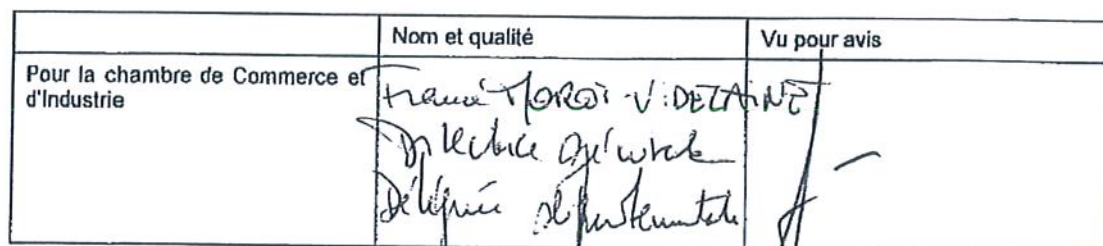 Nom et qualité
Vu pour avis
Pour la chambre de Commerce et
d'Industrie
MOROT-VIDELAINE
Directrice Générale
Déléguée départementale